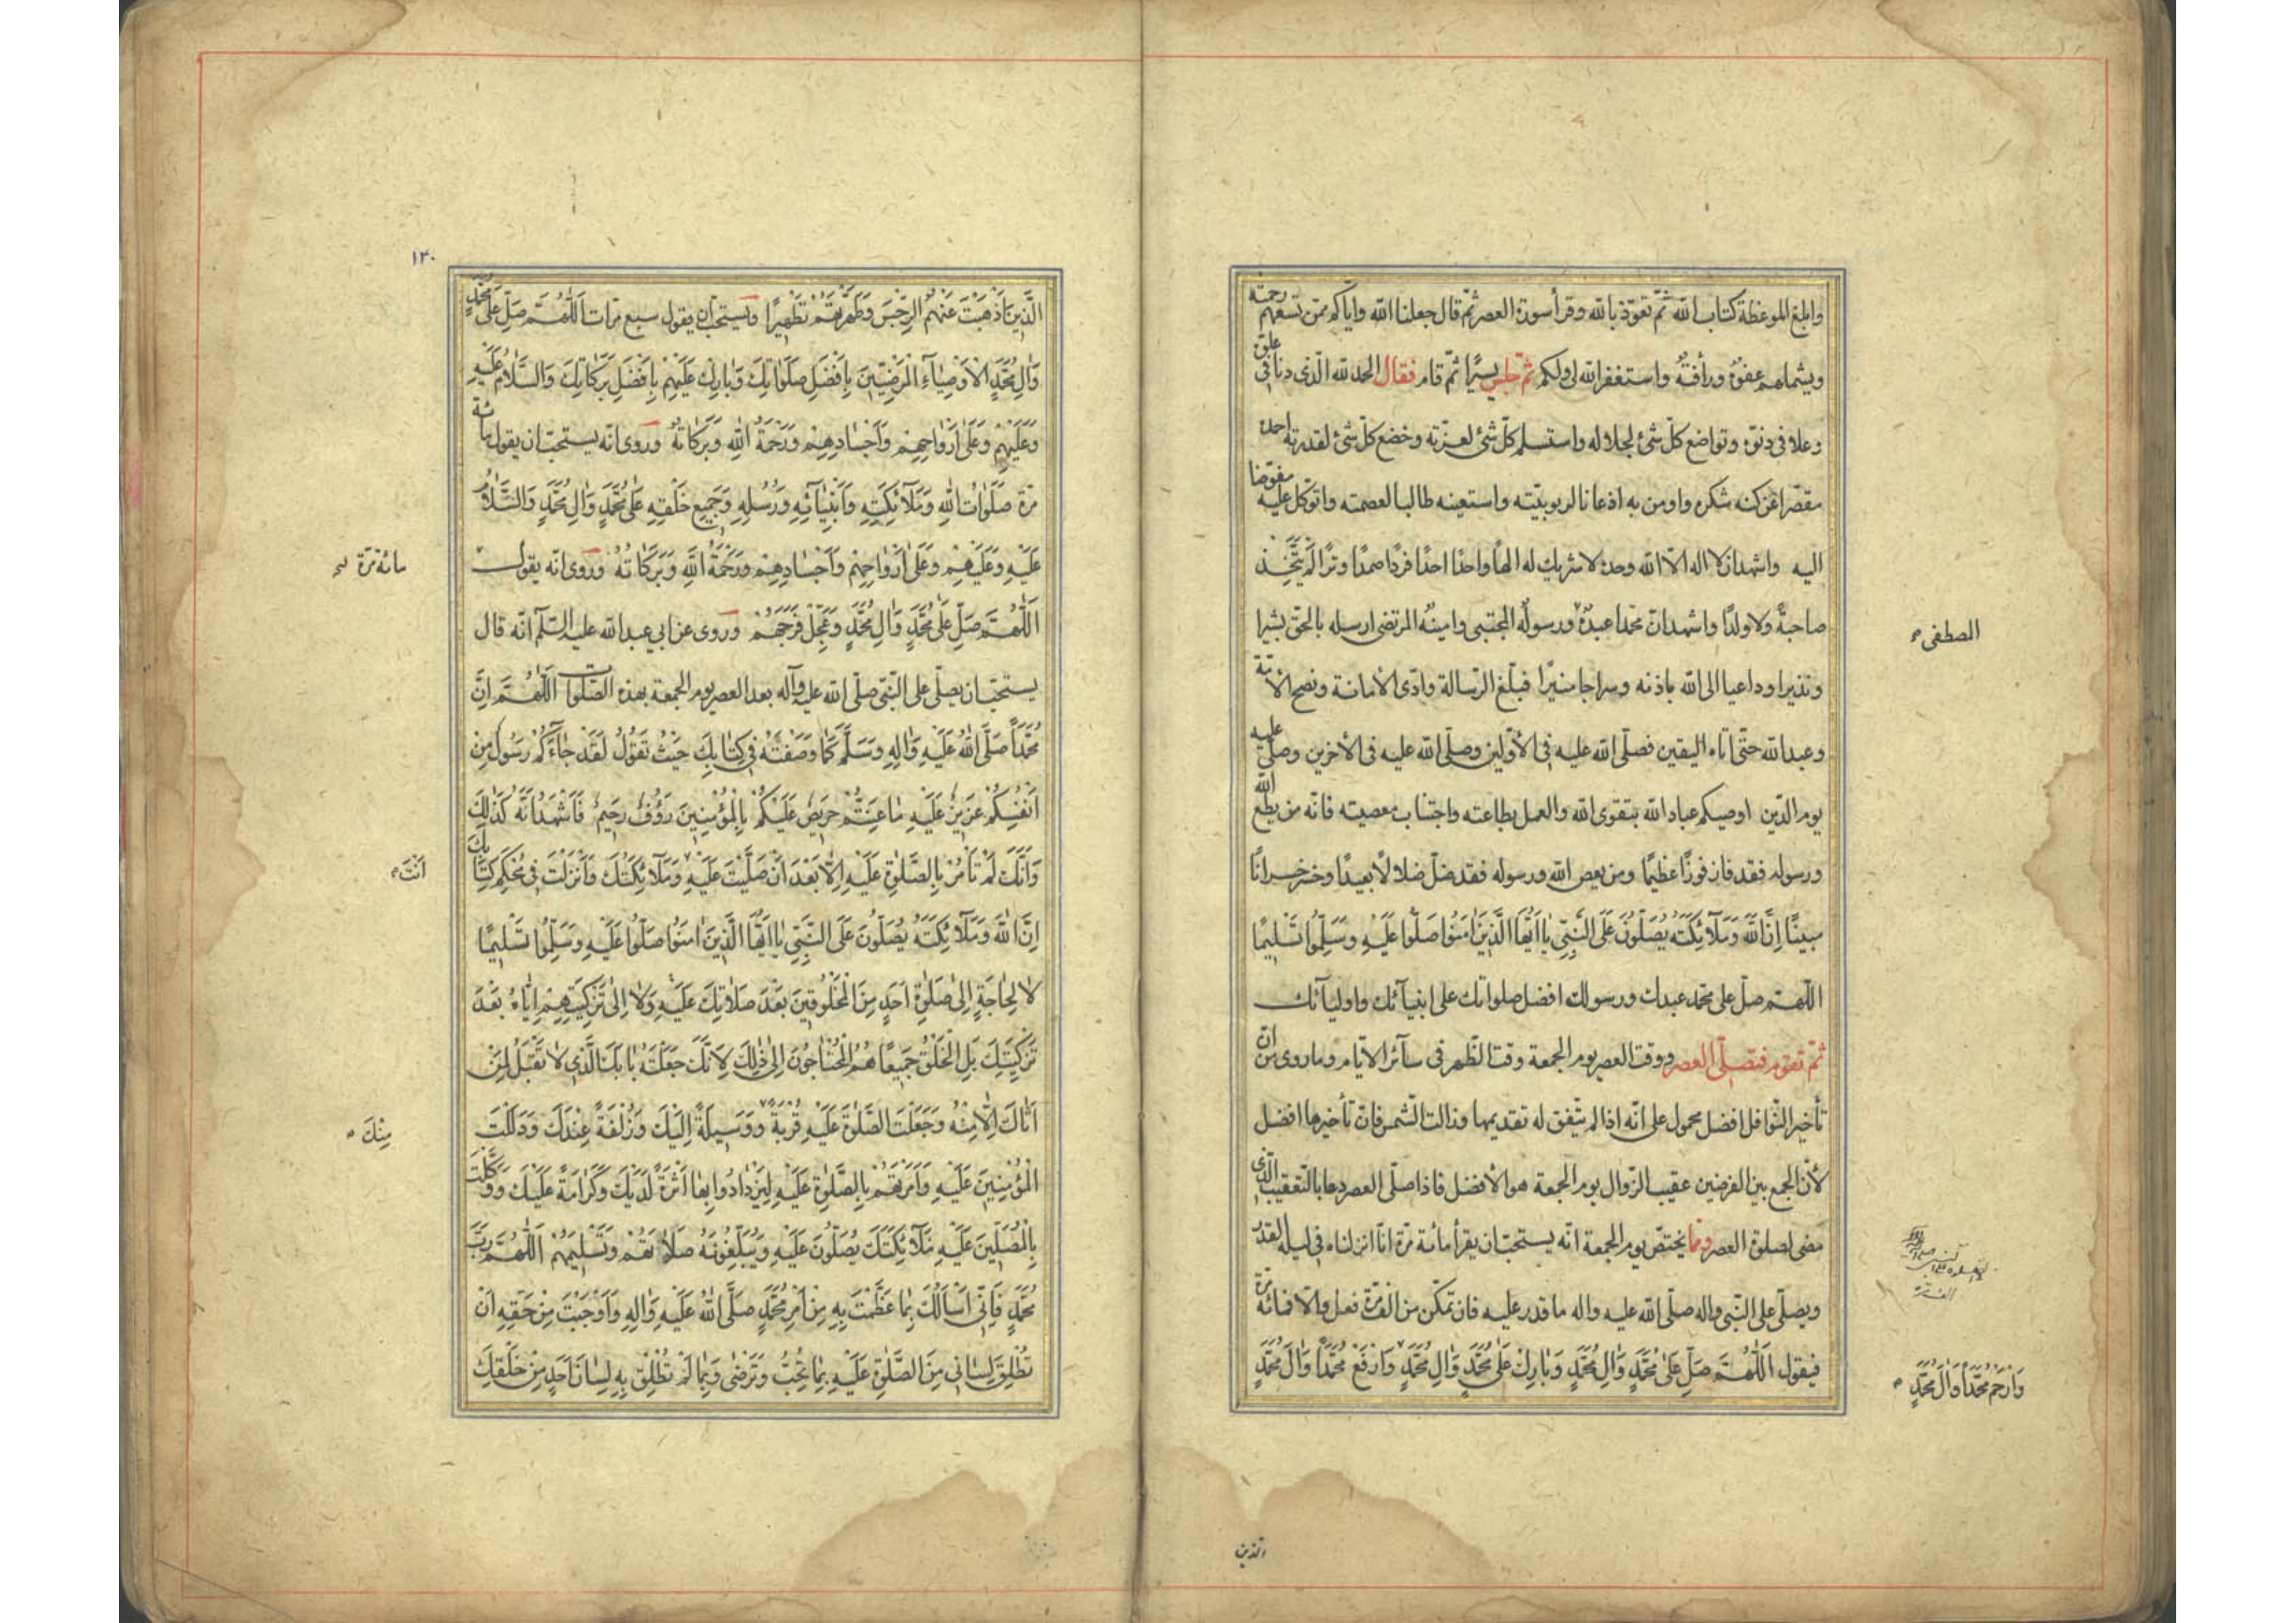 وابلغ الموعظة كتاب الله ثمّ تعوّذ بالله وقرأ سورة العصر ثمّ قال جعلنا الله وايّاكم ممّن تسعهم رحمته
ويشملهم عفوه ورأفته واستغفر الله لى ولكم ثمّ جلس يسيرًا ثمّ قام فقال الحمد لله الّذى دنا فى علوّه
وعلا فى دنوّه وتواضع كلّ شئ لجلاله واستسلم كلّ شئ لعزّته وخضع كلّ شئ لقدرته احمده
مقصّرا عن كنه شكره واومن به اذعانا لربوبيّته واستعينه طالبا لعصمته واتوكّل عليه مفوّضا
اليه واشهد ان لا اله الّا الله وحده لا شريك له الهًا واحدًا احدًا فردًا صمدًا وترًا لم يتّخذ
صاحبةً ولا ولدًا واشهد انّ محمّدا عبده ورسوله المجتبى وامينه المرتضى ارسله بالحقّ بشيرا
المصطفى
ونذيرا وداعيا الى الله باذنه وسراجا منيرًا فبلّغ الرّسالة وادّى الأمانة ونصح الأمّة
وعبد الله حتّى اتاه اليقين فصلّى الله عليه فى الأوّلين وصلّى الله عليه فى الأخرين وصلّى عليه
يوم الدّين اوصيكم عباد الله بتقوى الله والعمل بطاعته واجتناب معصيته فانّه من يطع الله
ورسوله فقد فاز فوزًا عظيمًا ومن يعص الله ورسوله فقد ضلّ ضلالًا بعيدًا وخسر خسرانًا
مبينًا اِنَّ اللهَ وَمَلآئِكَتَهُ يُصَلُّونَ عَلَى النَّبِيِّ يٰا اَيُّهَا الَّذِينَ اٰمَنُوا صَلُّوا عَلَيْهِ وَسَلِّمُوا تَسْلِيمًا
اللّهمّ صلّ على محمّد عبدك ورسولك افضل صلواتك على انبيآئك واوليآئك
ثمّ تقوم فتصلّى العصر ووقت العصر يوم الجمعة وقت الظّهر فى سآئر الايّام وما روى من انّ
تأخير النّوافل افضل محمول على انّه اذا لم يتّفق له تقديمها وزالت الشّمس فانّ تأخيرها افضل
لأنّ الجمع بين الفرضين عقيب الزّوال يوم الجمعة هو الأفضل فاذا صلّى العصر دعا بالتّعقيب الّذى
مضى لصلوة العصر وممّا يختصّ يوم الجمعة انّه يستحبّ ان يقرأ مائة مرّة انّا انزلناه فى ليلة القدر
ويصلّى على النّبى واله صلّى الله عليه واله ما قدر عليه فان تمكّن من الف مرّة فعل والّا فمائة مرّة
فيقول اَللّٰهُمَّ صَلِّ عَلٰى مُحَمَّدٍ وَاٰلِ مُحَمَّدٍ وَبٰارِكْ عَلٰى مُحَمَّدٍ وَاٰلِ مُحَمَّدٍ وَارْفَعْ مُحَمَّدًا وَاٰلَ مُحَمَّدٍ
وَارْحَمْ مُحَمَّدًا وَاٰلَ مُحَمَّدٍ
الذين
١٣٠
الَّذِينَ اَذْهَبْتَ عَنْهُمُ الرِّجْسَ وَطَهَّرْتَهُمْ تَطْهِيرًا ويستحبّ ان يقول سبع مرّات اَللّٰهُمَّ صَلِّ عَلٰى مُحَمَّدٍ
وَاٰلِ مُحَمَّدٍ الْاَوْصِيٰآءِ الْمَرْضِيِّينَ بِاَفْضَلِ صَلَوٰاتِكَ وَبٰارِكْ عَلَيْهِمْ بِاَفْضَلِ بَرَكٰاتِكَ وَالسَّلٰامُ عَلَيْهِ
وَعَلَيْهِمْ وَعَلٰى اَرْوٰاحِهِمْ وَاَجْسٰادِهِمْ وَرَحْمَةُ اللهِ وَبَرَكٰاتُهُ وروى انّه يستحبّ ان يقول مائة
مرّة صَلَوٰاتُ اللهِ وَمَلآئِكَتِهِ وَاَنْبِيٰآئِهِ وَرُسُلِهِ وَجَمِيعِ خَلْقِهِ عَلٰى مُحَمَّدٍ وَاٰلِ مُحَمَّدٍ وَالسَّلٰامُ
عَلَيْهِ وَعَلَيْهِمْ وَعَلٰى اَرْوٰاحِهِمْ وَاَجْسٰادِهِمْ وَرَحْمَةُ اللهِ وَبَرَكٰاتُهُ وروى انّه يقول
مائة مرّة
اَللّٰهُمَّ صَلِّ عَلٰى مُحَمَّدٍ وَاٰلِ مُحَمَّدٍ وَعَجِّلْ فَرَجَهُمْ وروى عن ابى عبد الله عليه السّلم انّه قال
يستحبّ ان يصلّى على النّبىّ صلّى الله عليه وآله بعد العصر يوم الجمعة بهذه الصّلوات اَللّٰهُمَّ اِنَّ
مُحَمَّدًا صَلَّى اللهُ عَلَيْهِ وَاٰلِهِ وَسَلَّمَ كَمٰا وَصَفْتَهُ فِى كِتٰابِكَ حَيْثُ تَقُولُ لَقَدْ جٰآءَكُمْ رَسُولٌ مِنْ
اَنْفُسِكُمْ عَزِيزٌ عَلَيْهِ مٰا عَنِتُّمْ حَرِيصٌ عَلَيْكُمْ بِالْمُؤْمِنِينَ رَؤُفٌ رَحِيمٌ فَاَشْهَدُ اَنَّهُ كَذٰلِكَ
وَاَنَّكَ لَمْ تَأْمُرْ بِالصَّلٰوةِ عَلَيْهِ اِلّٰا بَعْدَ اَنْ صَلَّيْتَ عَلَيْهِ وَمَلآئِكَتُكَ وَاَنْزَلْتَ فِى مُحْكَمِ كِتٰابِكَ
اَنْتَ
اِنَّ اللهَ وَمَلآئِكَتَهُ يُصَلُّونَ عَلَى النَّبِيِّ يٰا اَيُّهَا الَّذِينَ اٰمَنُوا صَلُّوا عَلَيْهِ وَسَلِّمُوا تَسْلِيمًا
لٰا لِحٰاجَةٍ اِلٰى صَلٰوةِ اَحَدٍ مِنَ الْمَخْلُوقِينَ بَعْدَ صَلٰاتِكَ عَلَيْهِ وَلٰا اِلٰى تَزْكِيَتِهِمْ اِيّٰاهُ بَعْدَ
تَزْكِيَتِكَ بَلِ الْخَلْقُ جَمِيعًا هُمُ الْمُحْتٰاجُونَ اِلٰى ذٰلِكَ لِاَنَّكَ جَعَلْتَهُ بٰابَكَ الَّذِى لٰا تَقْبَلُ لِمَنْ
اَتٰاكَ اِلّٰا مِنْهُ وَجَعَلْتَ الصَّلٰوةَ عَلَيْهِ قُرْبَةً وَوَسِيلَةً اِلَيْكَ وَزُلْفَةً عِنْدَكَ وَدَلَلْتَ
مِنْكَ
الْمُؤْمِنِينَ عَلَيْهِ وَاَمَرْتَهُمْ بِالصَّلٰوةِ عَلَيْهِ لِيَزْدٰادُوا بِهٰا اَثَرَةً لَدَيْكَ وَكَرٰامَةً عَلَيْكَ وَوَكَّلْتَ
بِالْمُصَلِّينَ عَلَيْهِ مَلآئِكَتَكَ يُصَلُّونَ عَلَيْهِ وَيُبَلِّغُونَهُ صَلٰاتَهُمْ وَتَسْلِيمَهُمْ اَللّٰهُمَّ رَبَّ
مُحَمَّدٍ فَاِنِّى اَسْاَلُكَ بِمٰا عَظَّمْتَ بِهِ مِنْ اَمْرِ مُحَمَّدٍ صَلَّى اللهُ عَلَيْهِ وَاٰلِهِ وَاَوْجَبْتَ مِنْ حَقِّهِ اَنْ
تُطْلِقَ لِسٰانِى مِنَ الصَّلٰوةِ عَلَيْهِ بِمٰا تُحِبُّ وَتَرْضٰى وَبِمٰا لَمْ تُطْلِقْ بِهِ لِسٰانَ اَحَدٍ مِنْ خَلْقِكَ